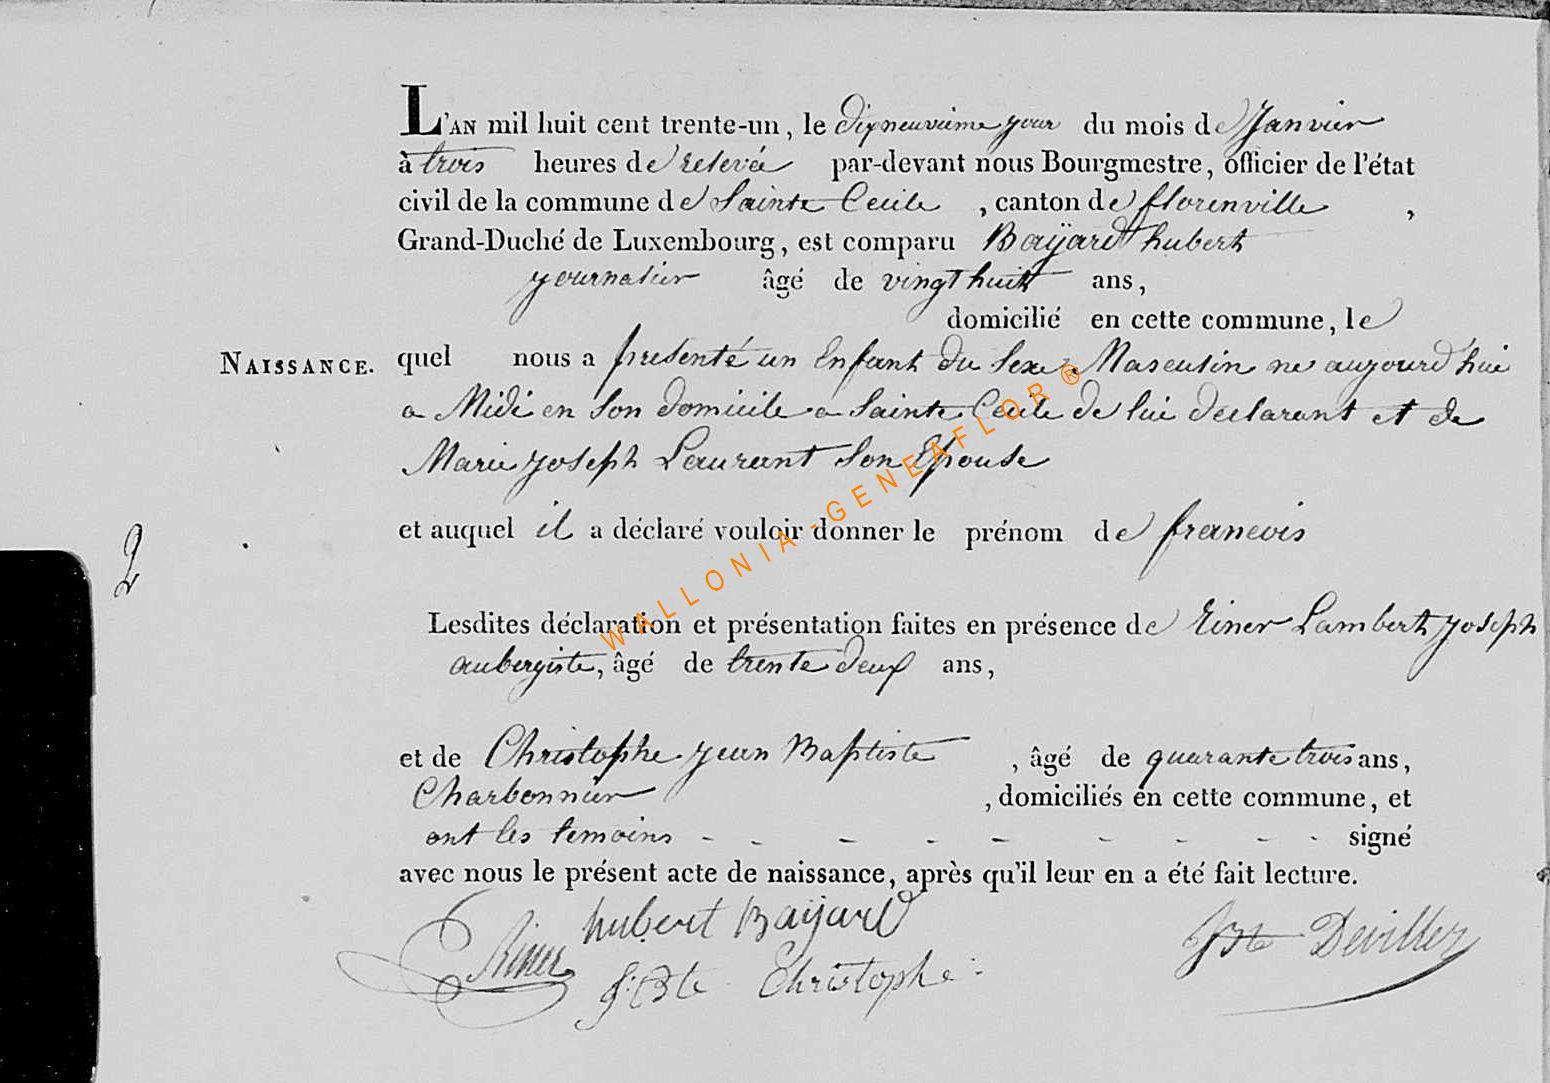 L'AN mil huit cent trente-un, le dixneuvieme jour du mois de Janvier
à trois heures de relevée par-devant nous Bourgmestre, officier de l'état
civil de la commune de Sainte Cecile , canton de florenville ,
Grand-Duché de Luxembourg, est comparu Baÿard hubert
journalier âgé de vingt huit ans,
domicilié en cette commune, le
NAISSANCE. quel nous a presenté un Enfant du Sexe Masculin né aujourd'hui
a Midi en Son domicile a Sainte Cecile de lui declarant et de
Marie joseph Laurant Son Epouse
et auquel il a déclaré vouloir donner le prénom de francois
2
Lesdites déclaration et présentation faites en présence de Riner Lambert joseph
aubergiste, âgé de trente deux ans,
et de Christophe jean Baptiste , âgé de quarante trois ans,
Charbonnier , domiciliés en cette commune, et
ont les temoins - - - - - - - - - signé
avec nous le présent acte de naissance, après qu'il leur en a été fait lecture.
hubert Baÿard
Riner
J: Bte Christophe
JBte Devillez
WALLONIA-GENEAFLOR®